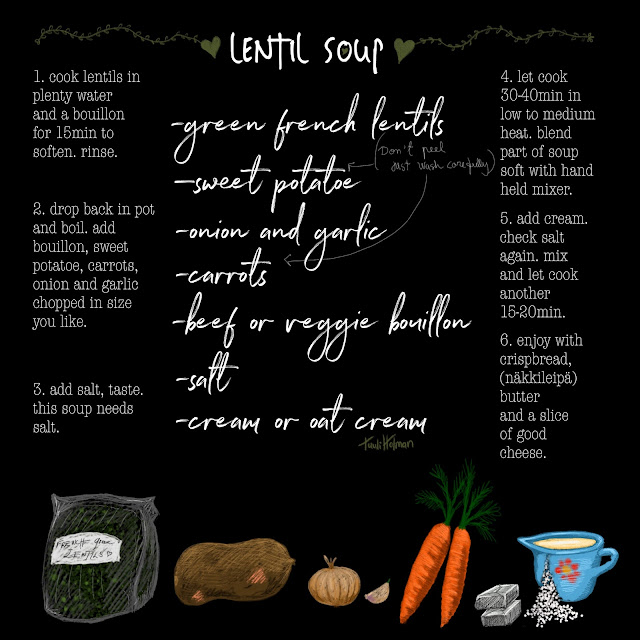 LENTIL SOUP
1. cook lentils in
plenty water
and a bouillon
for 15min to
soften. rinse.
2. drop back in pot
and boil. add
bouillon, sweet
potatoe, carrots,
onion and garlic
chopped in size
you like.
3. add salt, taste.
this soup needs
salt.
-green french lentils
(Don't peel
just wash carefully)
-sweet potatoe
-onion and garlic
-carrots
-beef or veggie bouillon
-salt
-cream or oat cream
Tuuli Halman
4. let cook
30-40min in
low to medium
heat. blend
part of soup
soft with hand
held mixer.
5. add cream.
check salt
again. mix
and let cook
another
15-20min.
6. enjoy with
crispbread,
(näkkileipä)
butter
and a slice
of good
cheese.
FRENCH
LENTILS